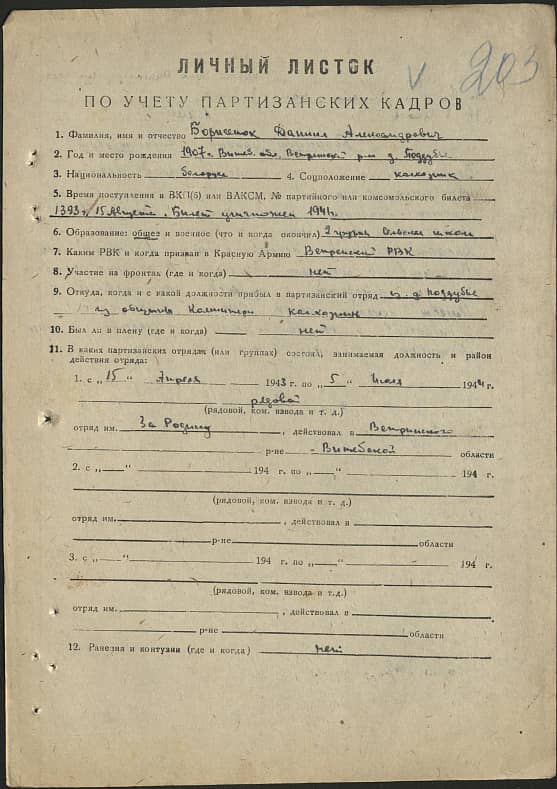 203
ЛИЧНЫЙ ЛИСТОК
ПО УЧЕТУ ПАРТИЗАНСКИХ КАДРОВ
1. Фамилия, имя и отчество Борисенок Даниил Александрович
2. Год и место рождения 1907 г. Витеб. обл. Ветринский р-н д. Поддубье
3. Национальность белорус 4. Соцположение колхозник
5. Время поступления в ВКП(б) или ВЛКСМ, № партийного или комсомольского билета
15 Августа. Билет уничтожен 1941 г.
6. Образование: общее и военное (что и когда окончил) 2 группы сельской школ
7. Каким РВК и когда призван в Красную Армию Ветренский РВК
8. Участие на фронтах (где и когда) нет
9. Откуда, когда и с какой должности прибыл в партизанский отряд из д. Поддубье
колхозник
10. Был ли в плену (где и когда) нет
11. В каких партизанских отрядах (или группах) состоял, занимаемая должность и район
действия отряда:
1. с „15" Апреля 1943 г. по „5" Июля 1944 г.
рядовой
(рядовой, ком. взвода и т. д.)
отряд им. За Родину, действовал в Ветринского
р-не Витебской области
2. с „ " 194 г. по „ " 194 г.
(рядовой, ком. взвода и т. д.)
отряд им. , действовал в
р-не области
3. с „ " 194 г. по „ " 194 г.
(рядовой, ком. взвода и т.д.)
отряд им. , действовал в
р-не области
12. Ранения и контузии (где и когда) нет